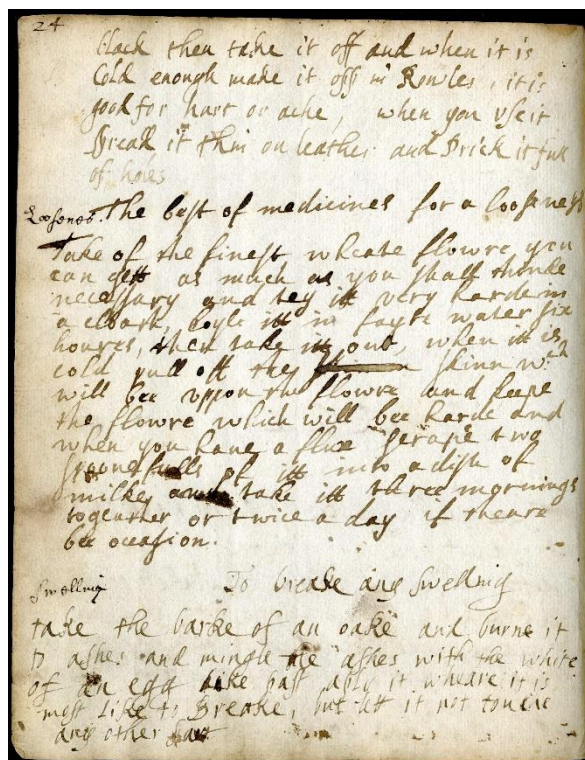 24
black then take it off and when it is
Cold enough make it off in Rowles, it is
good for hurt or ache, when you use it
Spread it thin on leather and Prick it full
of holes
Loosenes. The best of medicines for a loosenes
Take of the finest wheate flowre you
can gett as much as you shall thinke
necessary and tey itt very harde in
a cloath, boyle itt in fayre water six
houres, then take itt out, when itt is
cold pull off they skinn wth
will bee uppon the flowre and keepe
the flowre which will bee harde and
when you have a fluxe scrape two
spoonefulls of itt into a dish of
milke and take itt three mornings
togeather or twice a day if theare
bee occasion.
Swelling To breake any Swelling
take the barke of an oake and burne it
to ashes and mingle the ashes with the white
of an egg like past aply it wheare it is
most Like to Breake, but lett it not touche
any other part